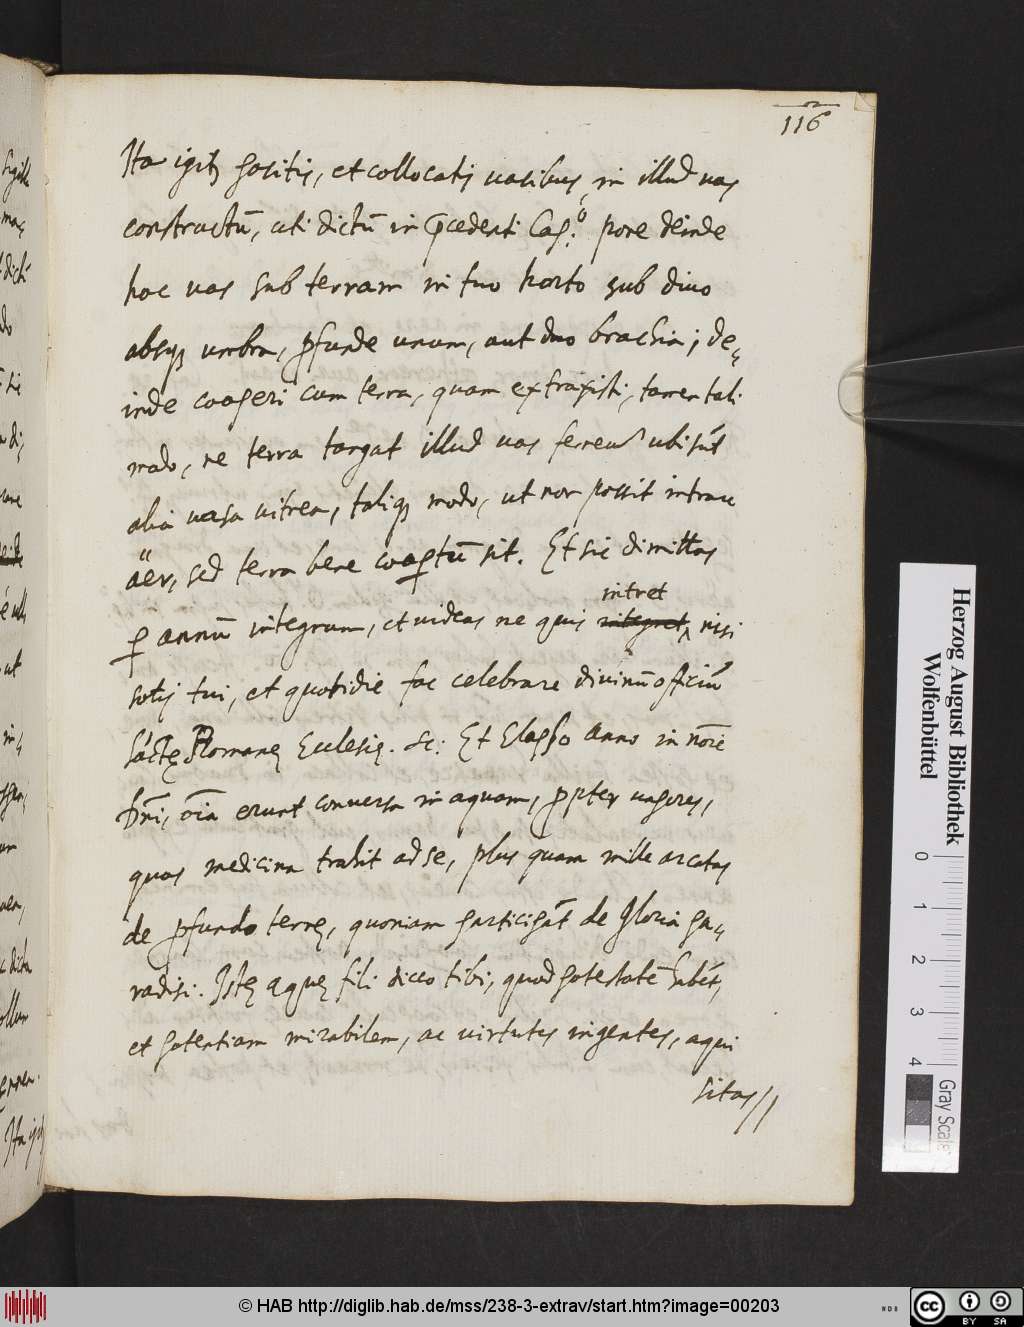 116
Ita igit᷒ positis, et collocatis vasibus, in illud vas
constructū, uti dictū in p̄cedenti Cap:º pone deinde
hoc vas sub terram in tuo horto sub divo
absq; umbra, ꝓfunde unum, aut duo brachia; de„
inde cooperi cum terra, quam extraxisti, tamen tali
modo, ne terra tangat illud vas ferreū ubi sūt
alia vasa vitrea, taliq; modo, ut non possit intrare
äer, sed terra bene coop̱tū sit. Et sic dimittas
ꝑ annū integrum, et videas ne quis integret intret nisi
solus tui, et quotidie fac celebrare divinū officiū
Sāctę Romanę Ecclesię. &c: Et Elapso anno in noīe
Dn̄i, oīa erunt conversa in aquam, ꝓpter vapores,
quos medicina trahit ad se, plus quam mille arcatas
de ꝓfundo terrę, quoniam participāt de Gloria pa„
radisi. Istę aquę fili dicco tibi, quod potestatē habēt,
et potentiam mirabilem, ac virtutes ingentes, aqui
sitas//
Ita igit
Herzog August Bibliothek
Wolfenbüttel
0 1 2 3 4
Gray Scale
© HAB http://diglib.hab.de/mss/238-3-extrav/start.htm?image=00203
cc BY SA